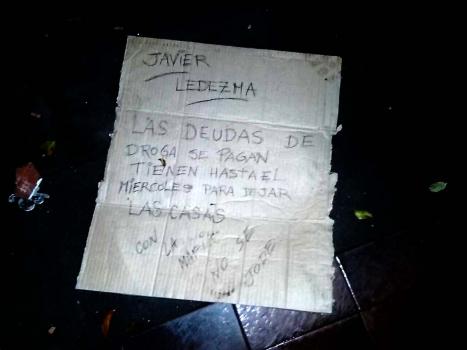 JAVIER
LEDEZMA
LAS DEUDAS DE
DROGA SE PAGAN
TIENEN HASTA EL
MIERCOLES PARA DEJAR
LAS CASAS
CON LA
NO SE
JODE